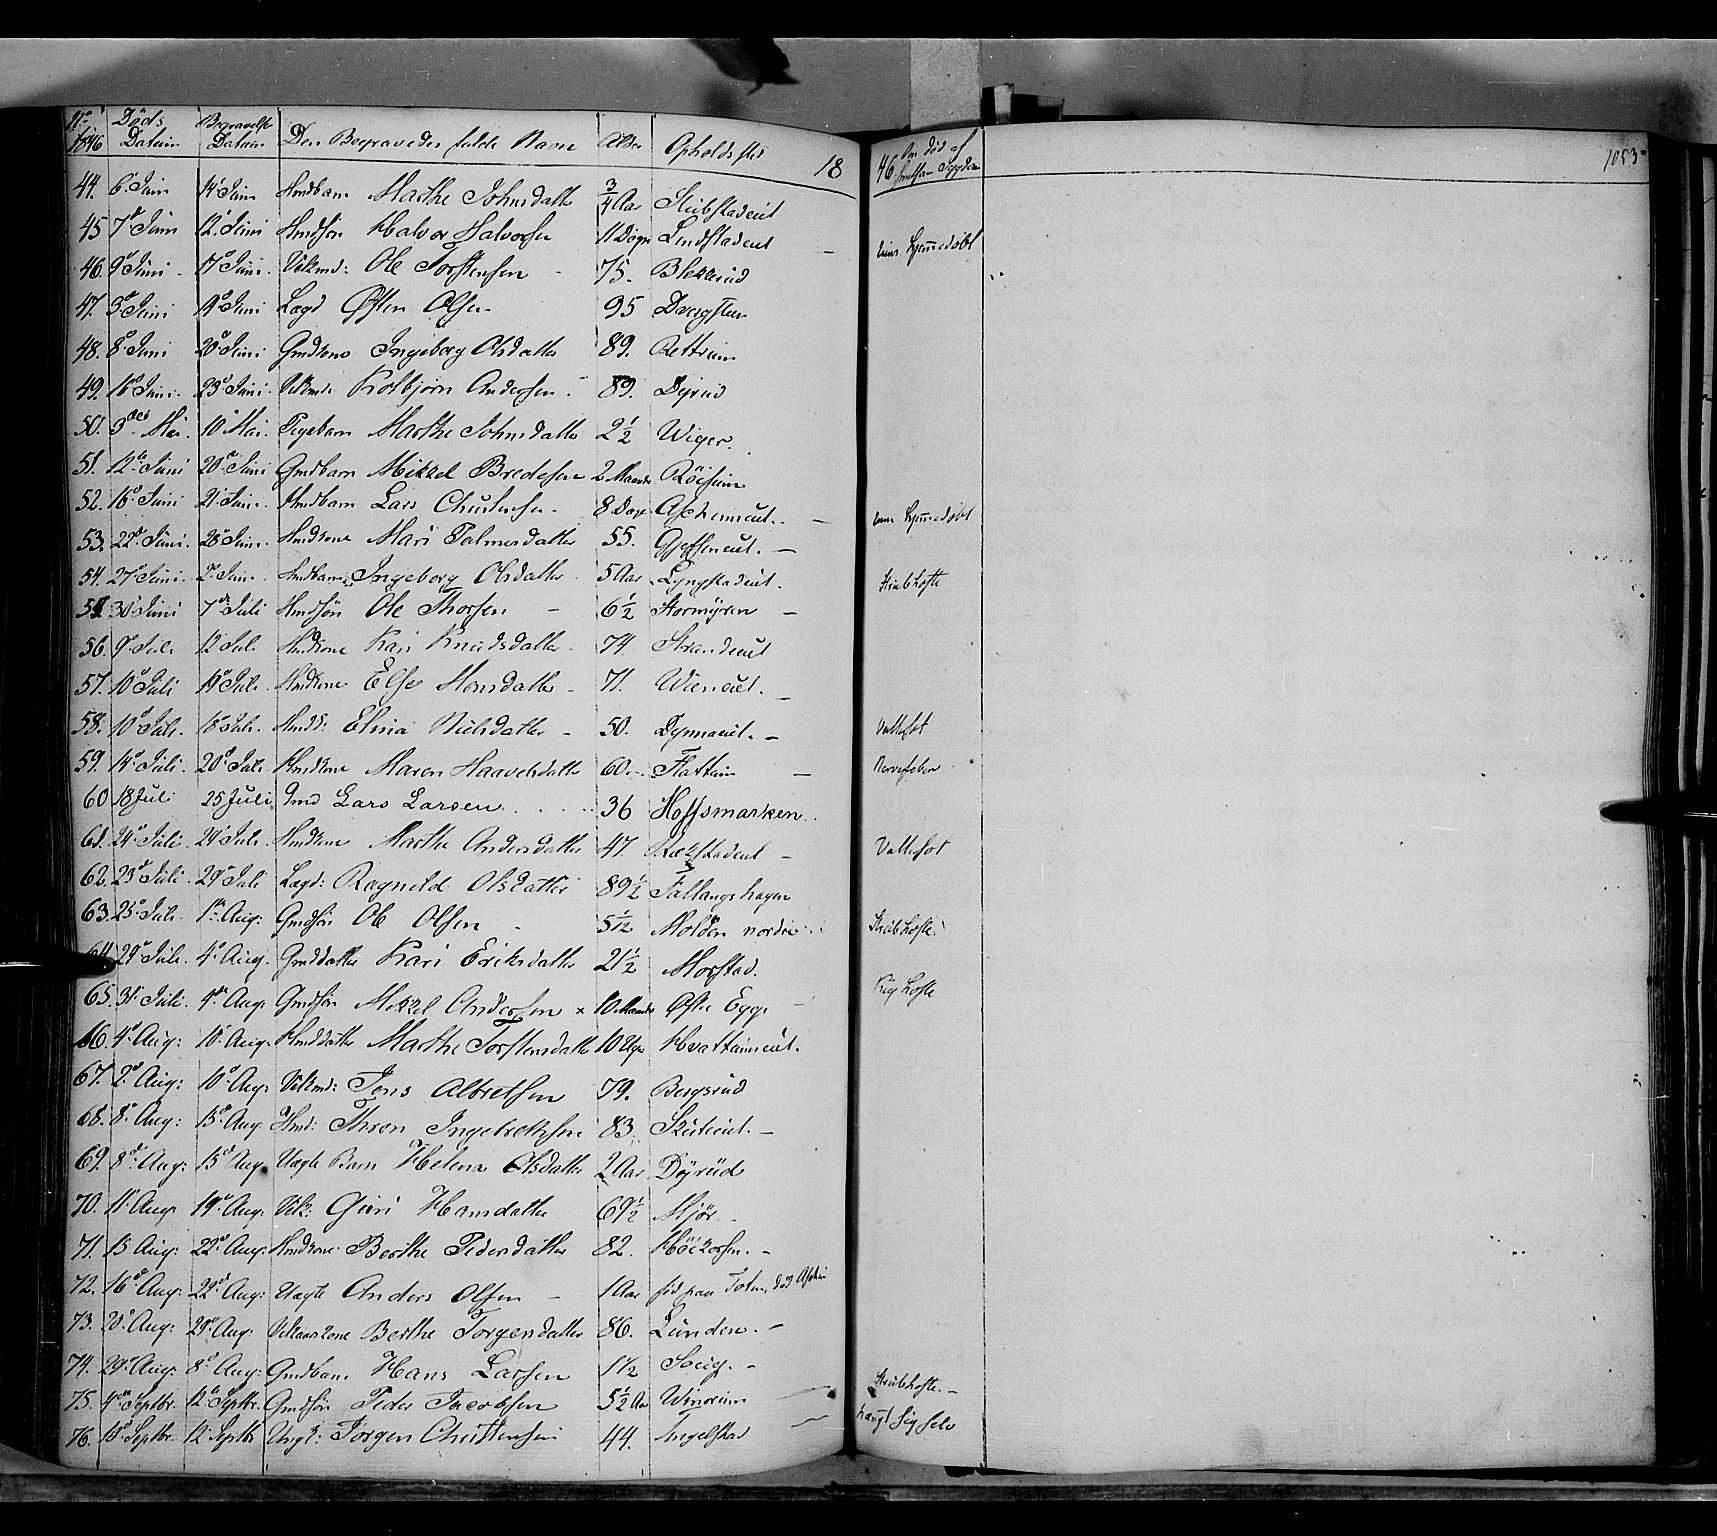 No 1846 Døds Datum Begravelse Datum Den Begravedes fulde Navn Alder Opholdssted 18
46 Om død af smitsom Sygdom 1053
44. 6 Juni 14 Juni Hmdbarn Marthe Johnsdatter 3/4 Aar Stubstadeiet
45 7d Juni 12 Juni Hmdsøn Halvor Halvorsen 11 Døgn Lindstadeiet — Hjemmedøbt
46. 9d Juni 17d Juni Vilkmd: Ole Torstensen 75. Blekkerud
47. 3d Juni 19d Juni Lægd Østen Olsen 95 Dvergsten
48. 8d Juni 20d Juni Gmdkone Ingeborg Olsdatter 89. Rettrum
49. 16d Juni 23d Juni Vilkmd: Kolbjørn Andersen 89. Dyrud
50. 3die Mai 10 Mai. Pigebarn Marthe Johnsdatter 2 1/2 Wiger.
51. 12te Juni 20d Juni Gmdbarn Mikkel Bredesen 2 Maaneder Røisum
52. 16d Juni 21 Juni Hmdbarn Lars Christensen 8 Dage Aschimeiet. — Hjemmedøbt
53. 22d Juni 28 Juni Hmdkone Mari Palmesdatter 55. Gjeffseneiet. —
54. 27d Juni 2d Juni Hmdbarn Ingeborg Olsdatter 5 Aar Lyngstadeiet. Strubhoste
55. 30 Juni 7de Juli Hmdsøn Ole Thorsen 6 1/2 Stormyren —
56. 9d Juli 12 Juli Hmdkone Kari Knudsdatter 74 Strandeiet
57. 10d Juli 19d Juli Hmdkone Else Hansdatter 71. Wieneiet. —
58. 10d Juli 18d Juli Hmdk: Elina Nielsdatter 50. Dynnaeiet. — Vattersot
59. 14d Juli 20d Juli Hmdkone Maren Haavelsdatter 60. Flattum — Nervefeber
60 18 Juli 25 Juli Gmd Lars Larsen 36 Hoffsmarken
61. 24d Juli 29d Juli Hmdkone Marthe Andersdatter 47. Rækstadeiet — Vattersot
62. 23d Juli 29d Juli Lægd: Ragnild Olsdatter 89 1/2 Fallangshagen
63. 25d Juli 1ste Aug: Gmdsøn Ole Olsen 5 1/2 Molden nordre Strubhoste.
64. 29d Juli 4d Aug. Gmddatter Kari Eriksdatter 21 1/2 Morstad.
65. 31 Juli 9de Aug. Gmdsøn Mikkel Andersen x 10 Maaneder Østre Egge Kighoste
66. 4d Aug: 10d Aug. Hmddatter Marthe Torstensdatter 10 Uger Hvattumeiet.
67. 2d Aug: 10d Aug: Vilkmd: Jens Albretsen 79. Bergsrud
68. 8d Aug: 15d Aug. Hmd: Thron Ingebrethsen 83. Skuteiet. —
69. 8d Aug: 15d Aug Uægte Barn Helena Olsdatter 2 Aar Døyrud
70. 11 Aug. 19d Aug: Vilk: Guri Hansdatter 69 1/2 Mjør.
71. 15 Aug: 22d Aug: Hmdkone Berthe Pedersdatter 82. Høikorsen. -
72. 16d Aug: 22d Aug: Uægte Anders Olsen — 1 Aar fød paa Toten, død Aschim
73. 20d Aug: 29d Aug: Vilkaarskone Berthe Torgersdatter 86. Lunden. -
74. 29d Aug: 8d Aug: Gmdbarn Hans Larsen 1 1/2 Soug. -
75. 4de Septbr. 12te Septbr. Gmdsøn Peder Jacobsen 5 1/2 Aar Windrum Strubhoste. —
76. 10d Septbr. 12 Septbr Ungk: Jørgen Christensen 44. Engelstad hængt sig selv